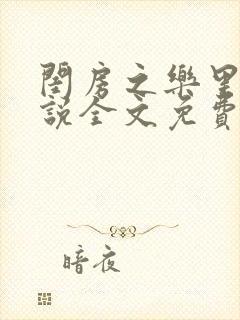 閨房之樂里
說全文免費
暗夜